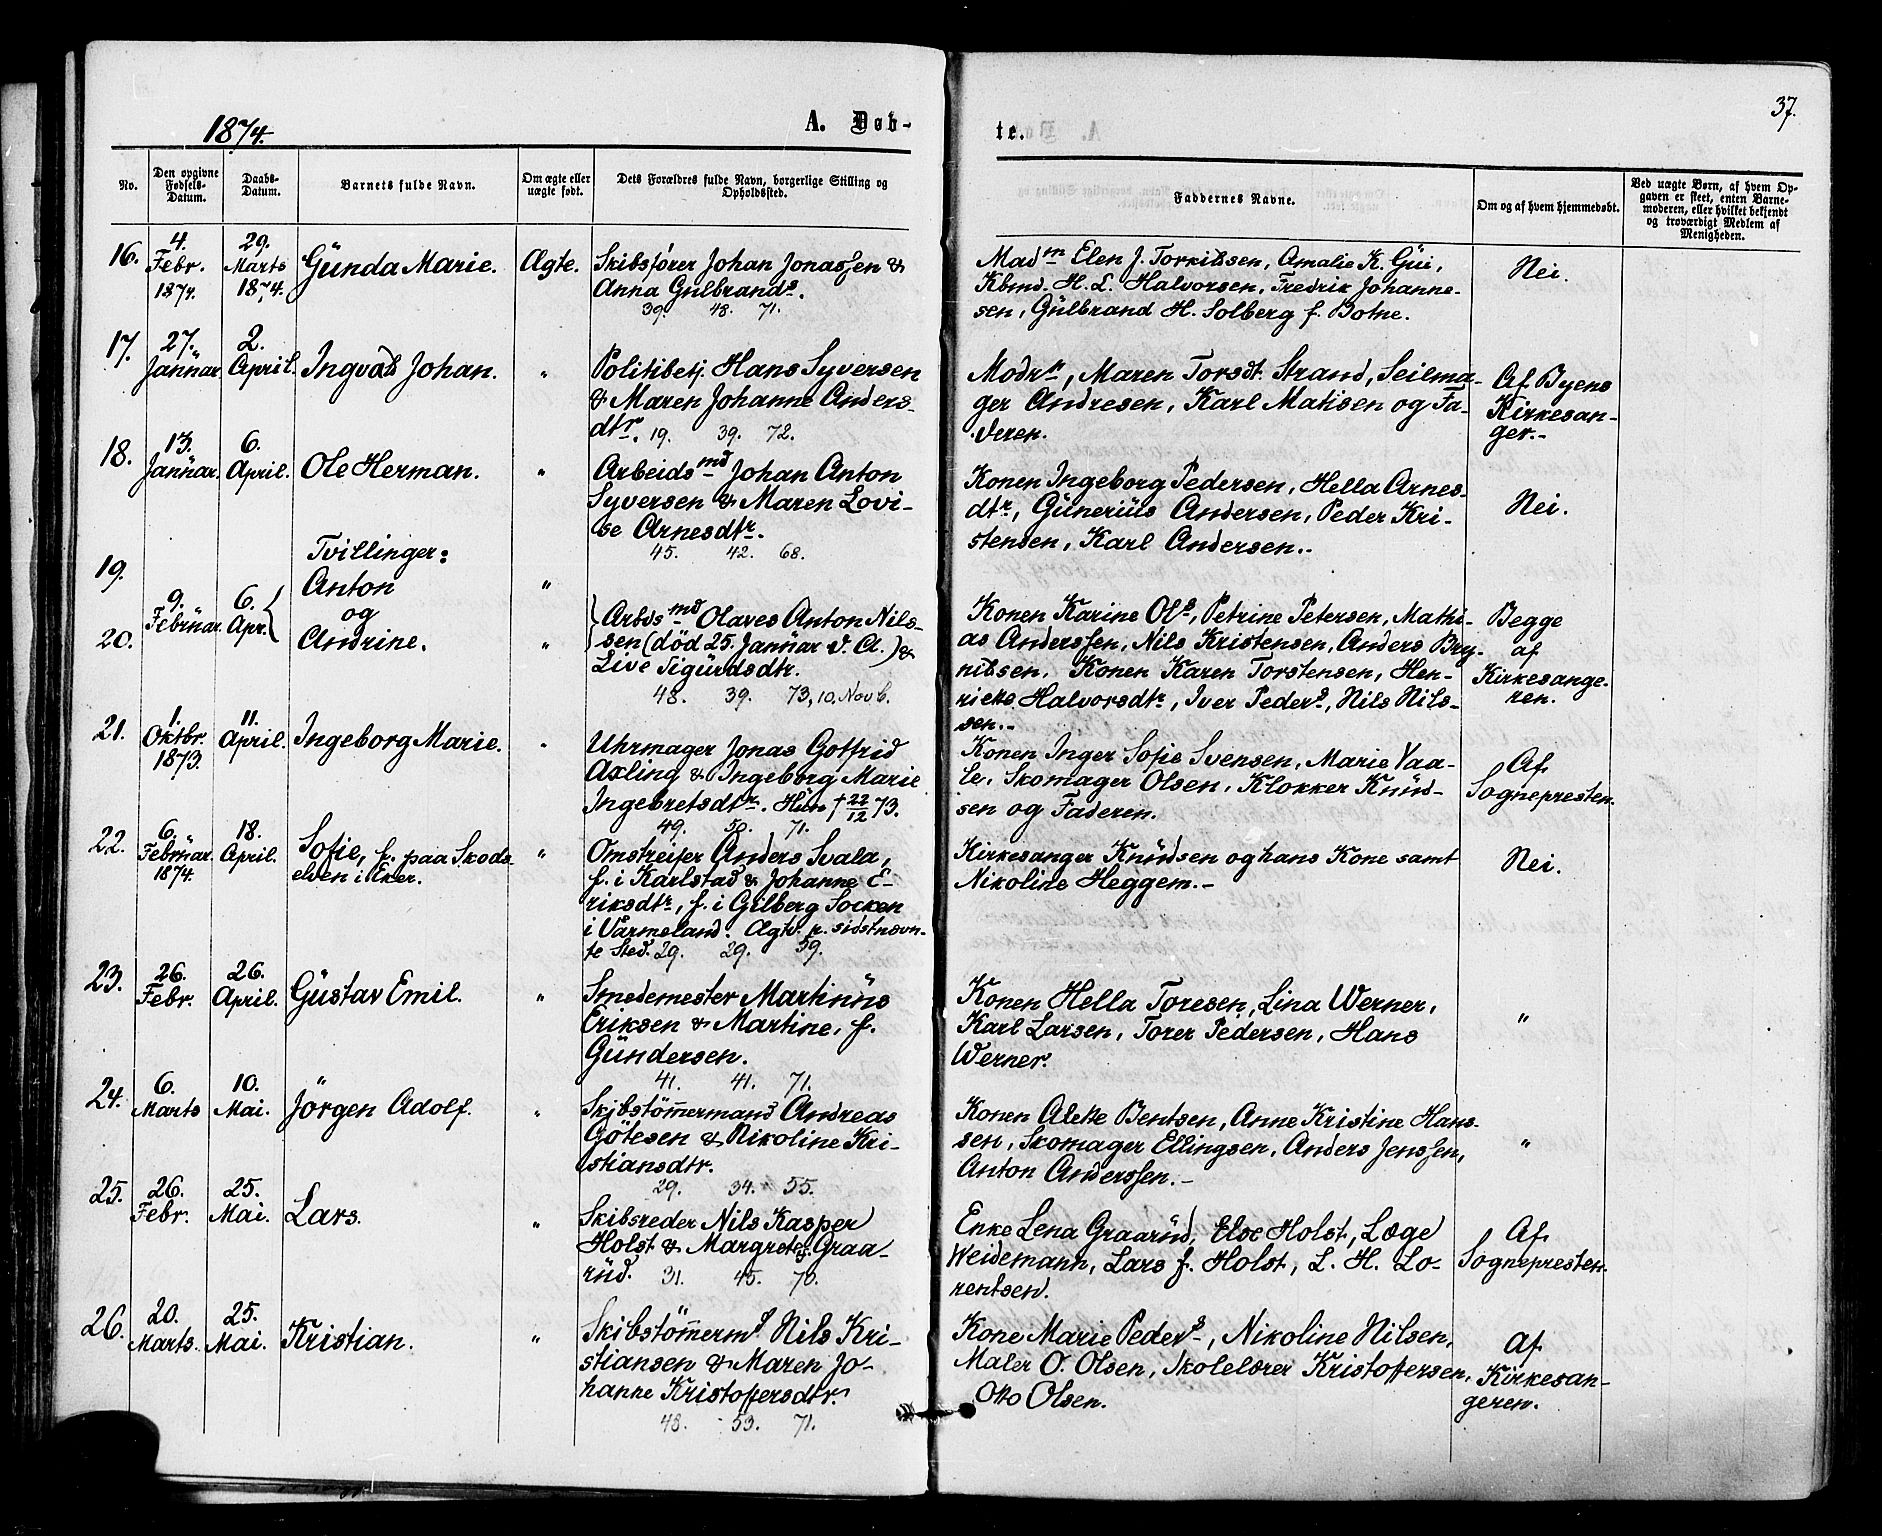 1874.
A. Døb-
te.
37.
No.
Den opgivne
Fødsels-
Datum.
Daabs-
Datum.
Barnets fulde Navn.
Om ægte eller
uægte født.
Dets Forældres fulde Navn, borgerlige Stilling og
Opholdssted.
Faddernes Navne.
Om og af hvem hjemmedøbt.
Ved uægte Børn, af hvem Op-
gaven er skeet, enten Barne-
moderen, eller hvilket bekjendt
og troværdigt Medlem af
Menigheden.
16.
4.
Febr.
1874.
29.
Marts
1874.
Günda Marie.
Ægte.
Skibsfører Johan Jonassen &
Anna Gulbrands.
39. 48. 71.
Madm Elen J. Torkilsen, Amalie K. Güi,
Kbmd. H. L. Halvorsen, Fredrik Johanne-
sen, Gülbrand H. Solberg f. Botne.
Nei.
17.
27.
Janüar
2.
April.
Ingvald Johan.
"
Politibetj. Hans Syversen
& Maren Johanne Anders-
dtr. 19. 39. 72.
Modrn, Maren Torsdt. Strand, Seilma-
ger Andresen, Karl Matisen og Fa-
deren.
Af Byens
Kirkesan-
ger.-
18.
13.
Janüar.
6.
April.
Ole Herman.
"
Arbeidsmd Johan Anton
Syversen & Maren Lovi-
se Arnesdtr.
45. 42. 68.
Konen Ingeborg Pedersen, Hella Arnes-
dtr, Günerius Andersen, Peder Kri-
stensen, Karl Andersen..
Nei.
Tvillinger:
19.
Anton
"
9.
Februar
6.
Apr.
og
20.
Andrine.
"
Arbdsmd Olaves Anton Nils-
sen (död 25. Janüar d. A.) &
Live Sigürdsdtr.
48. 39. 73, 10. Novb.
Konen Karine Ols, Petrine Petersen, Mathi-
as Anderssen, Nils Kristensen, Anders Bry-
nilsen. Konen Karen Torstensen, Hen-
riette Halvorsdtr, Iver Peders, Nils Nils-
sen.-
Begge
af
Kirkesange-
ren.
21.
1.
Oktbr.
1873.
11.
April.
Ingeborg Marie.
"
Uhrmager Jonas Gotfrid
Axling & Ingeborg Marie
Ingebretsdtr. Hün † 22/12 73.
49. 50. 71.
Konen Inger Sofie Svensen, Marie Vaa-
le, Skomager Olsen, Klokker Knüd-
sen og Faderen.
Af
Sognepresten.
22.
6.
Februar.
1874.
18.
April.
Sofie, f. paa Skods-
elven i Eker.
"
Omstreifer Anders Svala,
f. i Karlstad & Johanne E-
riksdtr, f. i Gilberg Socken
i Värmeland. Ægtv. p. sidstnævn-
te Sted. 29. 29. 59.
Kirkesanger Knüdsen og hans Kone samt
Nikoline Heggem.-
Nei.
23.
26.
Febr.
26.
April.
Güstav Emil.
"
Smedemester Martinüs
Eriksen & Martine, f.
Gündersen.
41. 41. 71.
Konen Hella Toresen, Lina Werner,
Karl Larsen, Torer Pedersen, Hans
Werner.
"
24.
6.
Marts
10.
Mai.
Jörgen Adolf.
"
Skibstöm̅ermand Andreas
Götesen & Nikoline Kri-
stiansdtr.
29. 34. 55.
Konen Alette Bentsen, Anne Kristine Hans-
sen, Skomager Ellingsen, Anders Jenssen,
Anton Anderssen.-
"
25.
26.
Febr.
25.
Mai.
Lars.
"
Skibsreder Nils Kasper
Holst & Margrete Graa-
rüd. 31. 45. 70.
Enke Lena Graarüd, Else Holst, Læge
Weidemann, Lars f. Holst, L. H. Lo-
rentsen.
Af
Sognepresten.
26.
20.
Marts.
25.
Mai.
Kristian.
"
Skibstöm̅ermd Nils Kri-
stiansen & Maren Jo-
hanne Kristoffersdtr.
48. 53. 71.
Kone Marie Peders, Nikoline Nilsen,
Maler O. Olsen, Skolelærer Kristoffersen,
Otto Olsen.
Af
Kirkesan-
geren.